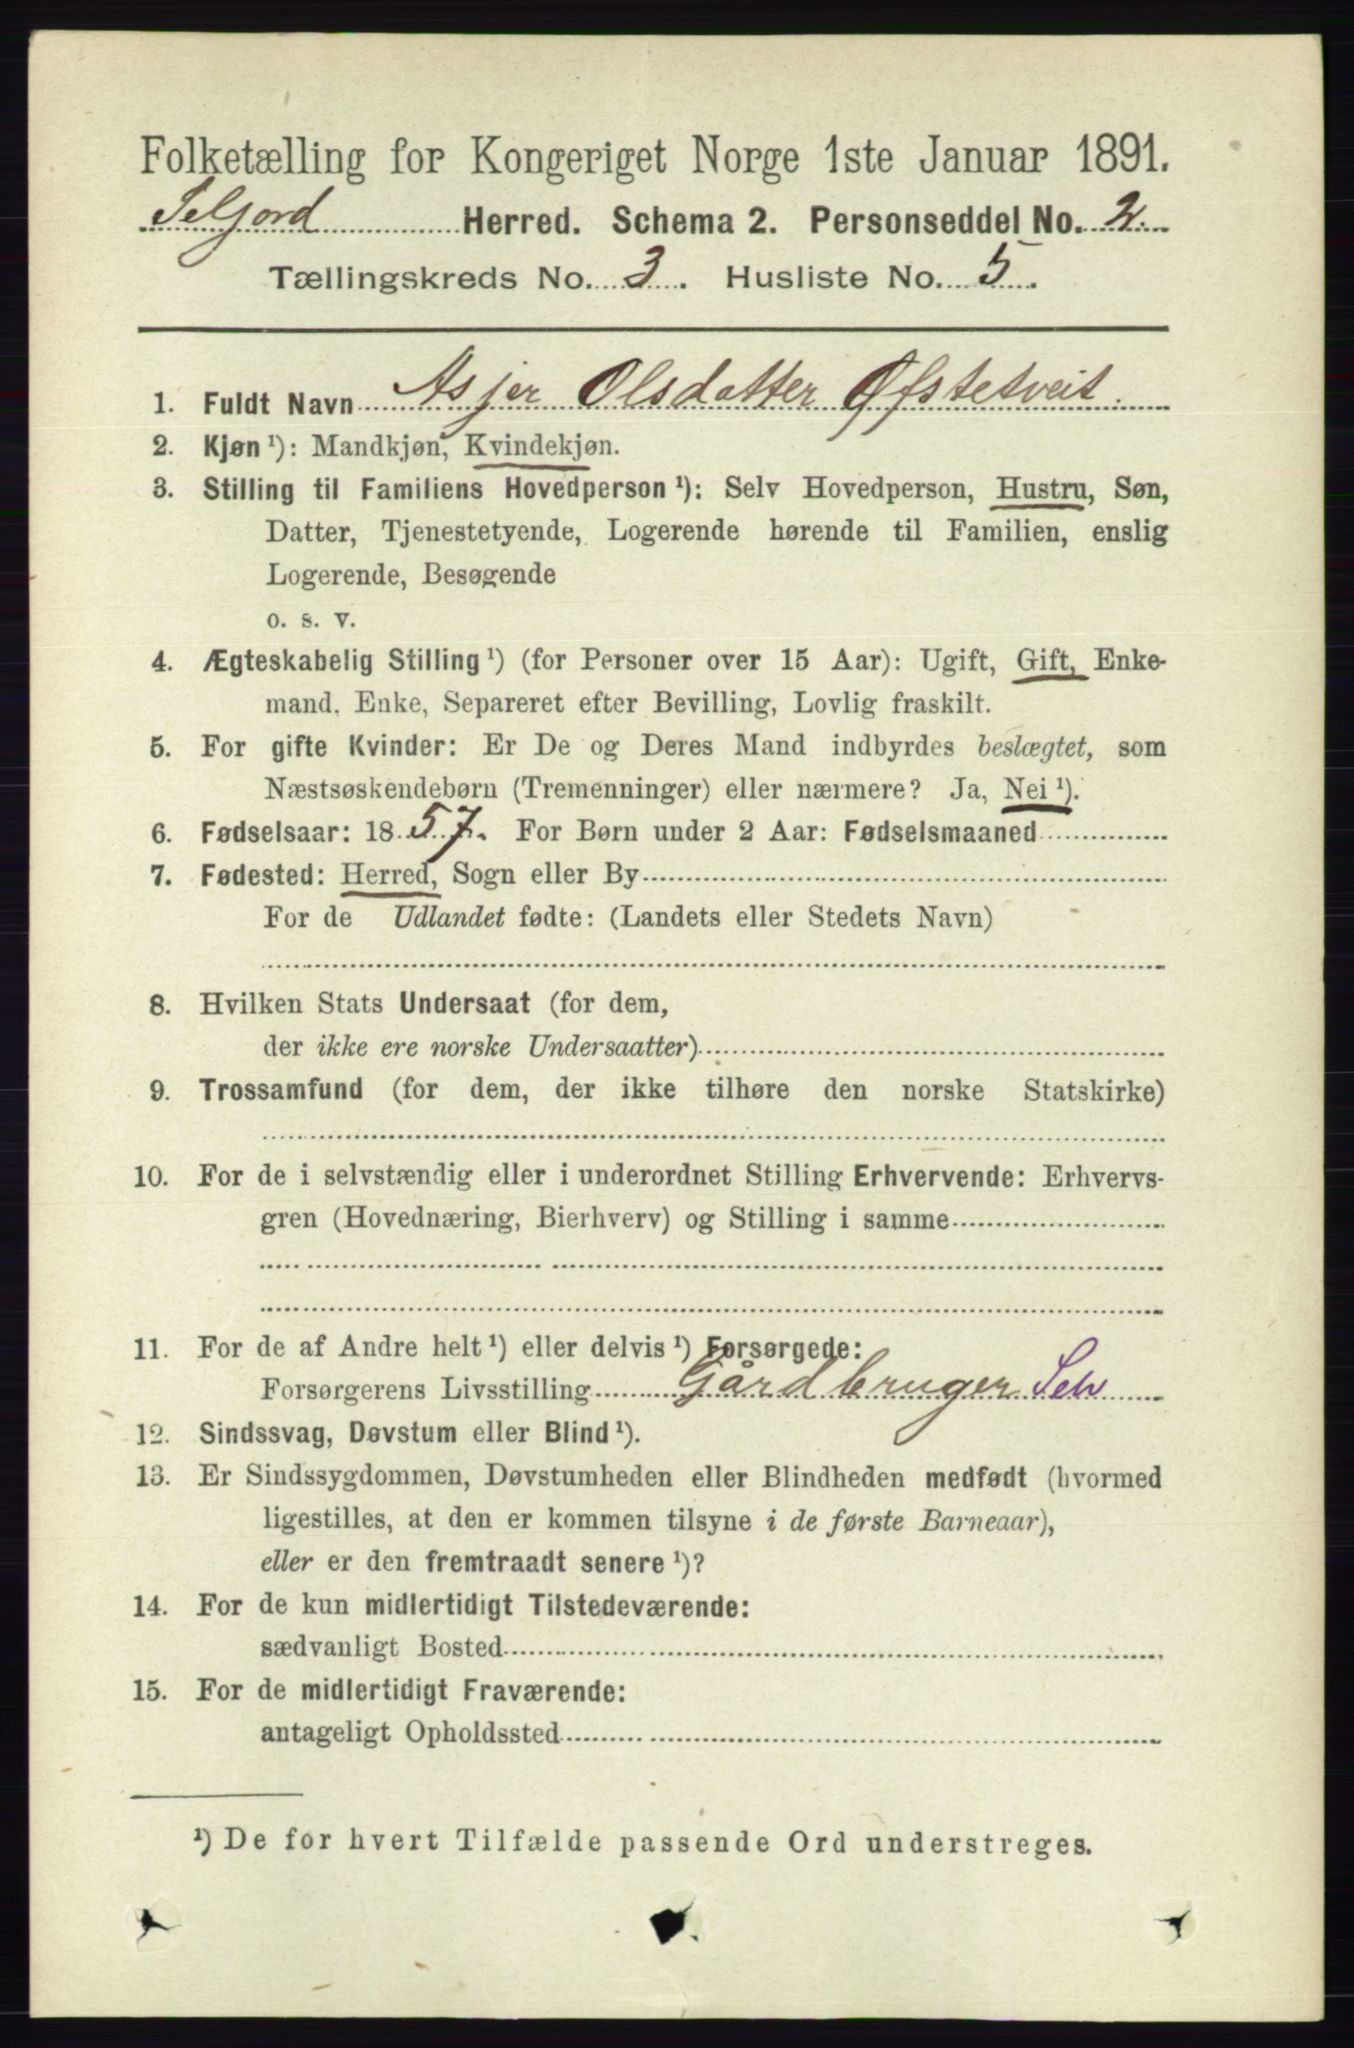 Folketælling for Kongeriget Norge 1ste Januar 1891.
Seljord Herred. Schema 2. Personseddel No. 2.
Tællingskreds No. 3. Husliste No. 5.
1. Fuldt Navn Asjer Olsdatter Øfstetveit.
2. Kjøn ¹): Mandkjøn, Kvindekjøn.
3. Stilling til Familiens Hovedperson ¹): Selv Hovedperson, Hustru, Søn,
Datter, Tjenestetyende, Logerende hørende til Familien, enslig
Logerende, Besøgende
o. s. v.
4. Ægteskabelig Stilling ¹) (for Personer over 15 Aar): Ugift, Gift, Enke-
mand, Enke, Separeret efter Bevilling, Lovlig fraskilt.
5. For gifte Kvinder: Er De og Deres Mand indbyrdes beslægtet, som
Næstsøskendebørn (Tremenninger) eller nærmere? Ja, Nei ¹).
6. Fødselsaar: 1857. For Børn under 2 Aar: Fødselsmaaned
7. Fødested: Herred, Sogn eller By
For de Udlandet fødte: (Landets eller Stedets Navn)
8. Hvilken Stats Undersaat (for dem,
der ikke ere norske Undersaatter)
9. Trossamfund (for dem, der ikke tilhøre den norske Statskirke)
10. For de i selvstændig eller i underordnet Stilling Erhvervende: Erhvervs-
gren (Hovednæring, Bierhverv) og Stilling i samme
11. For de af Andre helt ¹) eller delvis ¹) Forsørgede:
Forsørgerens Livsstilling Gårdbruger Selv
12. Sindssvag, Døvstum eller Blind ¹).
13. Er Sindssygdommen, Døvstumheden eller Blindheden medfødt (hvormed
ligestilles, at den er kommen tilsyne i de første Barneaar),
eller er den fremtraadt senere ¹)?
14. For de kun midlertidigt Tilstedeværende:
sædvanligt Bosted
15. For de midlertidigt Fraværende:
antageligt Opholdssted
¹) De for hvert Tilfælde passende Ord understreges.